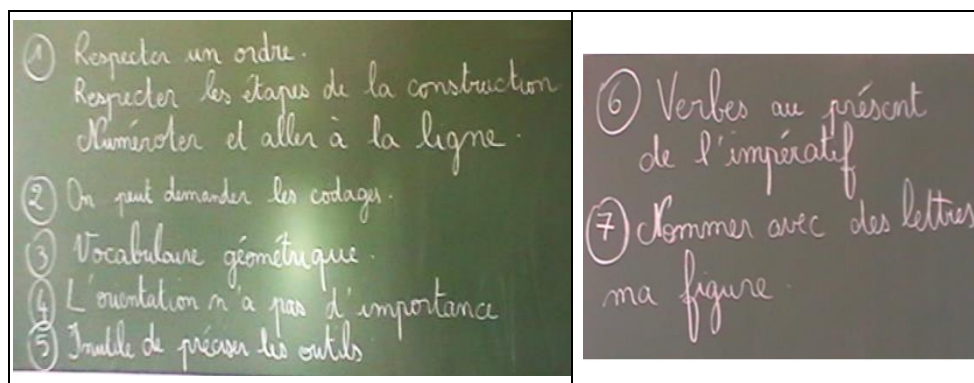 ① Respecter un ordre.
Respecter les étapes de la construction
Numéroter et aller à la ligne.
② On peut demander les codages.
③ Vocabulaire géométrique.
④ L'orientation n'a pas d'importance
⑤ Inutile de préciser les outils
⑥ Verbes au présent
de l'impératif
⑦ Nommer avec des lettres
ma figure.